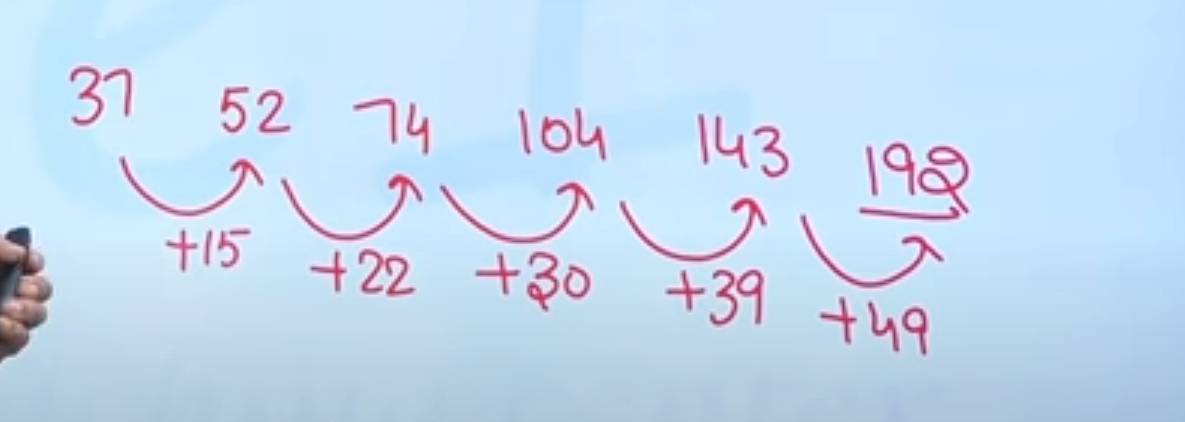 37 52 74 104 143 192
+15 +22 +30 +39 +49